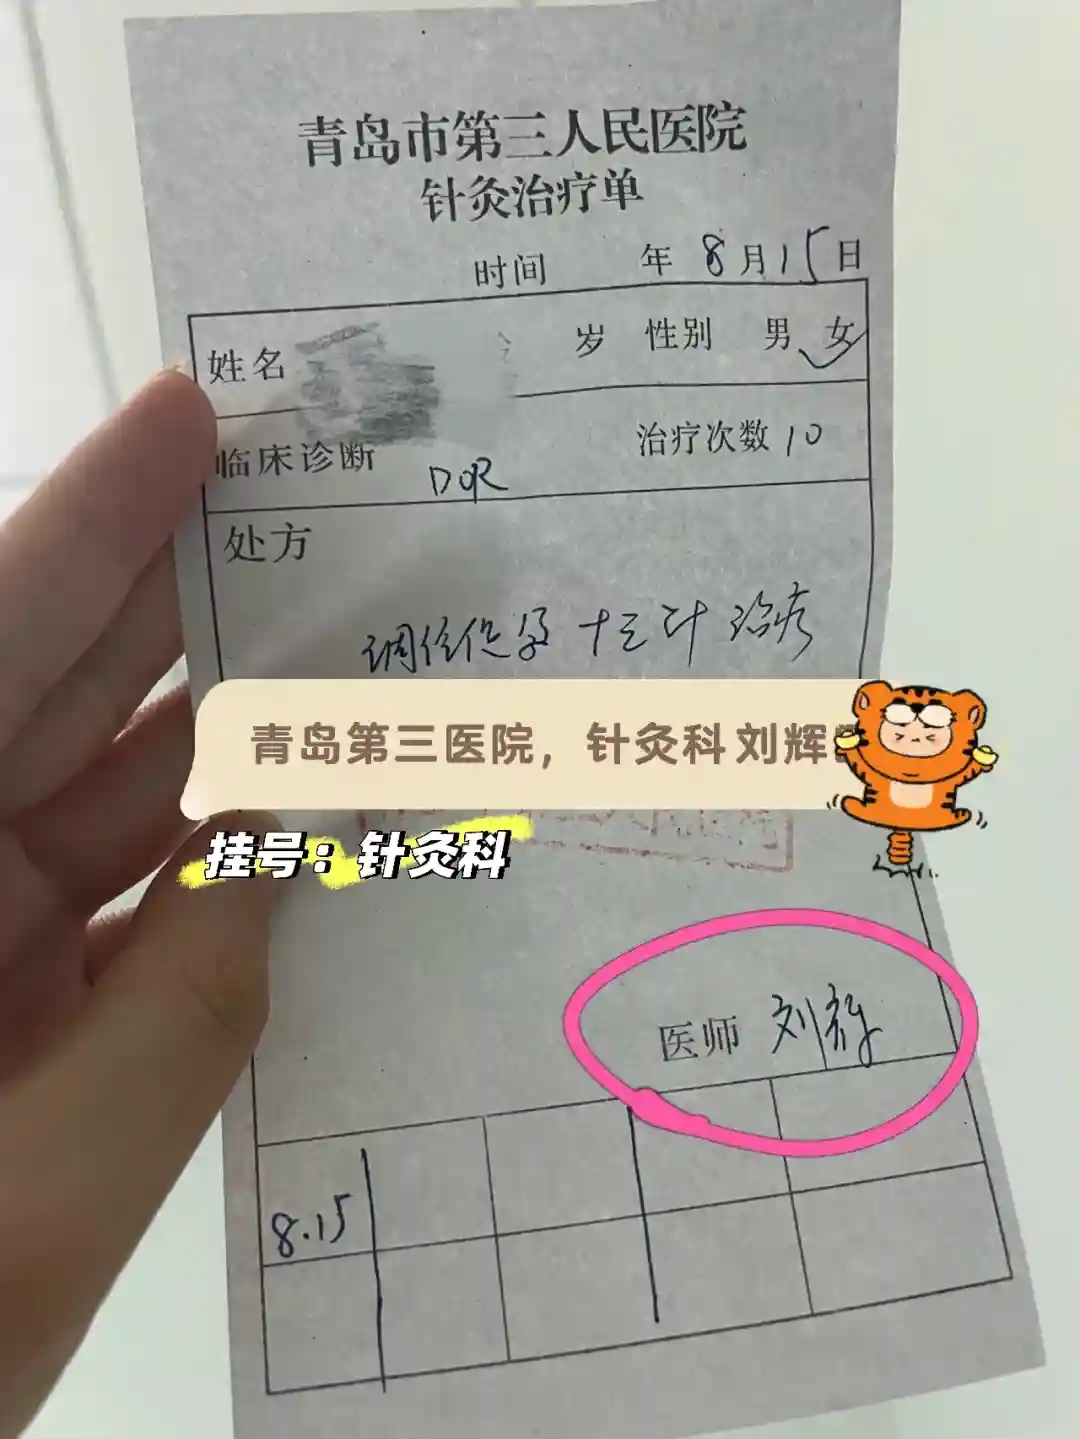 青岛市第三人民医院
针灸治疗单
时间 年 8月15日
姓名 岁 性别 男 女
临床诊断 DOR 治疗次数 10
处方
调任促孕十三针 治疗
青岛第三医院，针灸科刘辉
挂号：针灸科
医师 刘辉
8.15